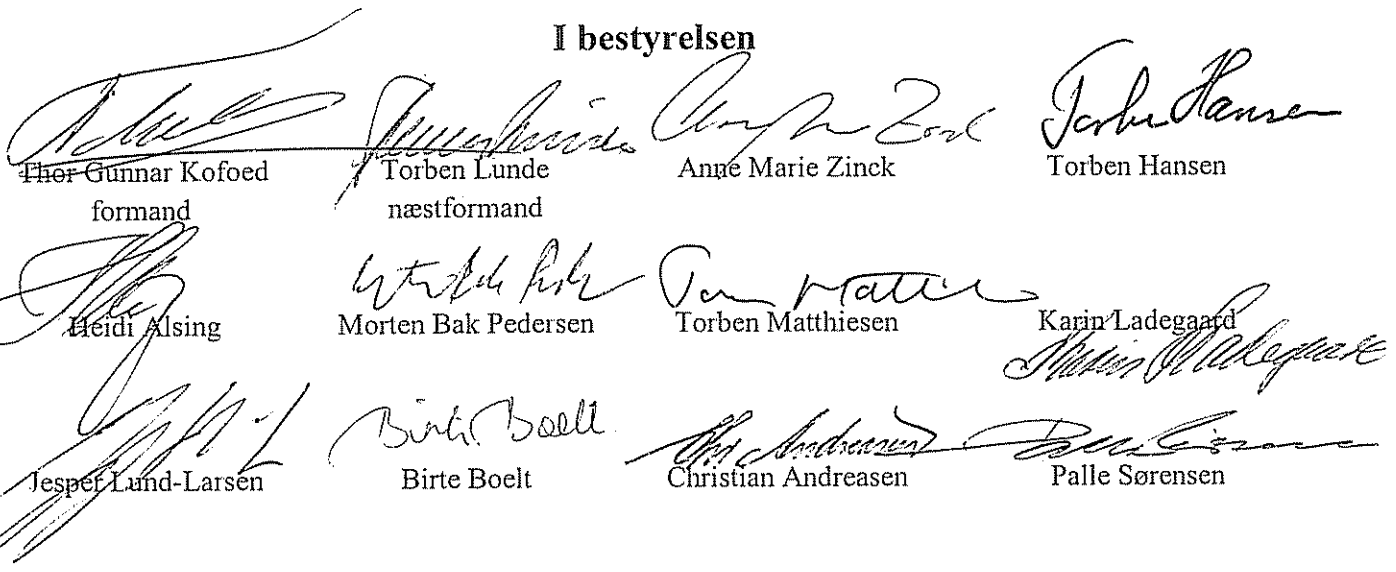 I bestyrelsen
Thor Gunnar Kofoed Torben Lunde Anne Marie Zinck Torben Hansen
formand næstformand
Heidi Alsing Morten Bak Pedersen Torben Matthiesen Karin Ladegaard
Jesper Lund-Larsen Birte Boelt Christian Andreasen Palle Sørensen